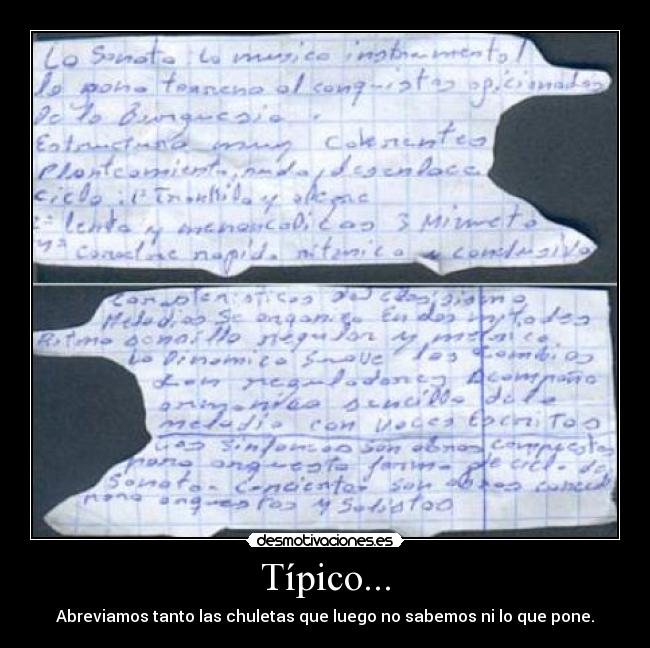 La Sonata: la musica instrumental
le pone terreno al conquistas aficionados
De la Burguesia.
Estructura muy Coherentes
Planteamiento, nudo, desenlace
ciclo: 1º Trankila y alegre
2ª lenta y menoncolicas 3 Minueto
4ª caracter rapido ritmico y conclusivo
Caracteristicas del clasicismo
Melodias Se organiza En dos mitades
Ritmo sencillo regular y
La Dinamica Suave los Cambios
reguladores Acompaña
armonica sencilla de la
melodia con voces Escritas
Las sinfonias son obras compuestas
para orquesta forma de ciclo de
Sonata. Conciertos son obras
para orquestas y Solistas
desmotivaciones.es
Típico...
Abreviamos tanto las chuletas que luego no sabemos ni lo que pone.